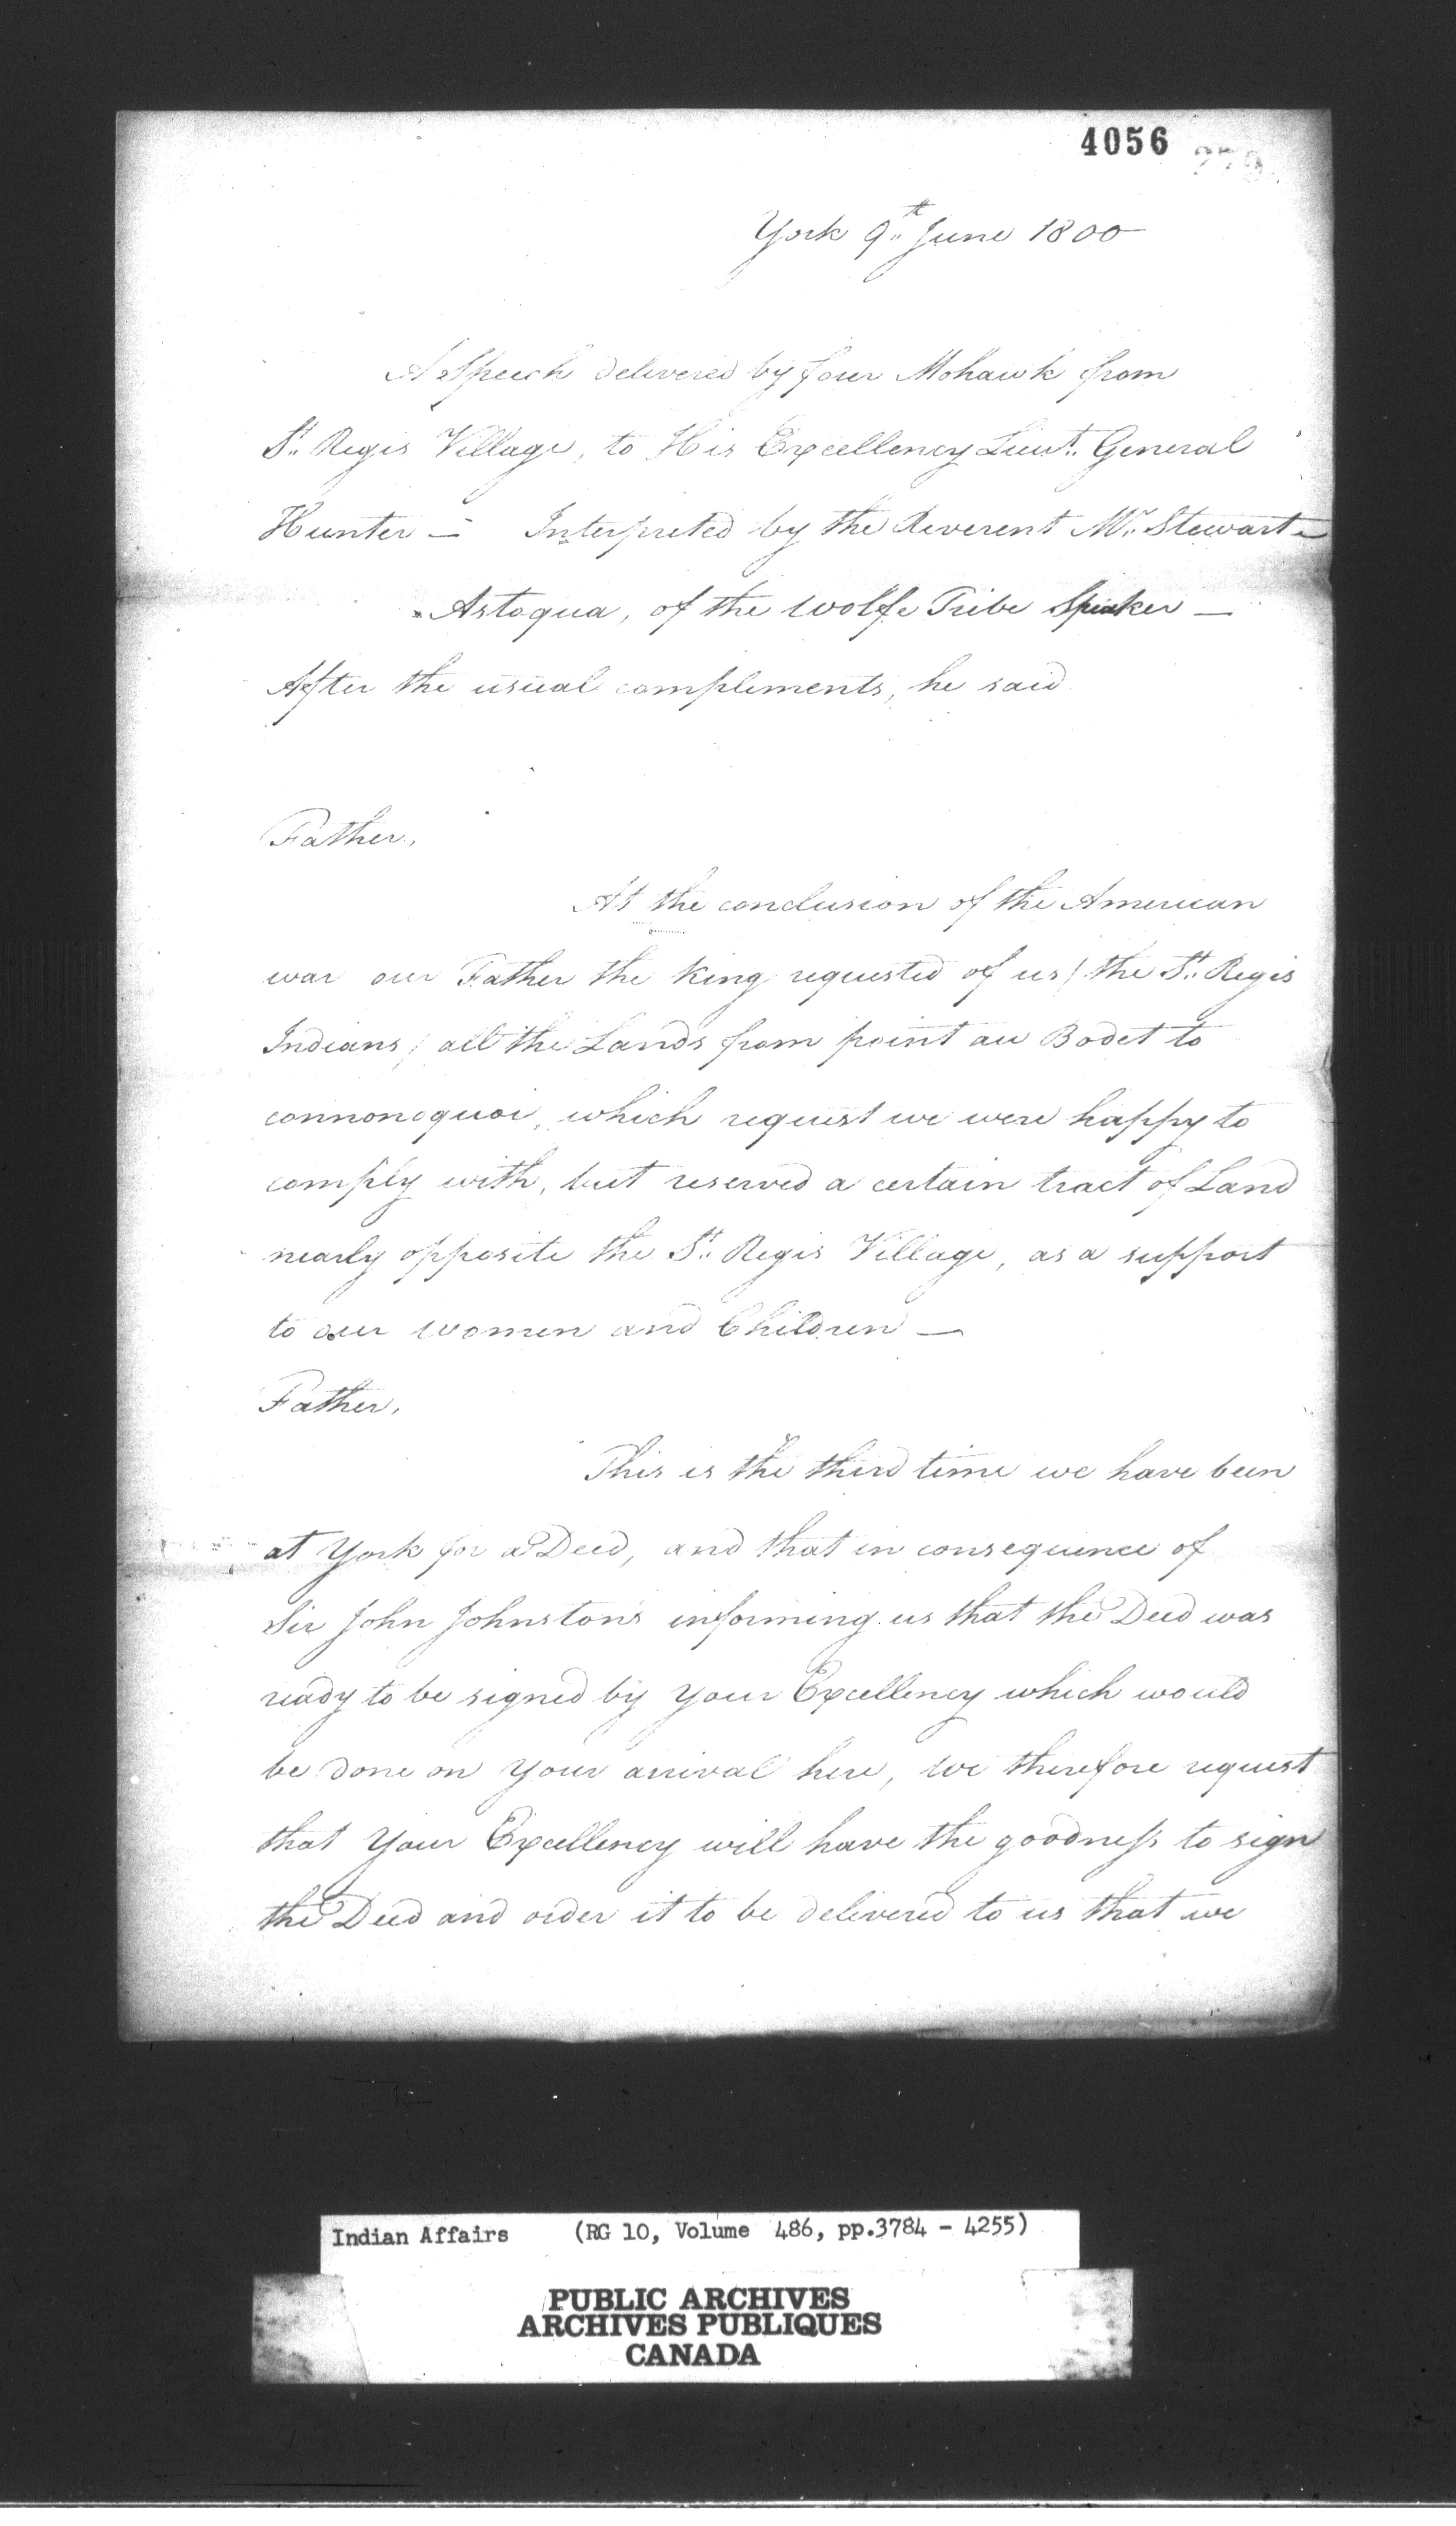 4056
York 9th June 1800
A Speech delivered by four Mohawk from
St. Regis Village, to His Excellency Lieut. General
Hunter — Interpreted by the Reverent Mr. Stewart —
Astoqua, of the Wolfe Tribe Speaker —
After the usual compliments, he said
Father,
At the conclusion of the American
war our Father the King requested of us (the St. Regis
Indians) all the Lands from point au Bodet to
connonoquoi, which request we were happy to
comply with, but reserved a certain tract of Land
nearly opposite the St. Regis Village, as a support
to our women and Children —
Father,
This is the third time we have been
at York for a Deed, and that in consequence of
Sir John Johnstons informing us that the Deed was
ready to be signed by Your Excellency which would
be done on Your arrival here, We therefore request
that Your Excellency will have the goodness to sign
the Deed and order it to be delivered to us that we
Indian Affairs (RG 10, Volume 486, pp.3784 - 4255)
PUBLIC ARCHIVES
ARCHIVES PUBLIQUES
CANADA